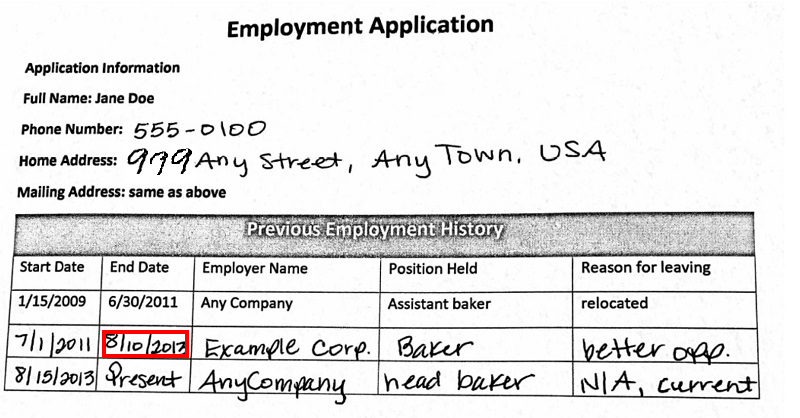 Employment Application
Application Information
Full Name: Jane Doe
Phone Number: 555-0100
Home Address: 999 Any Street, Any Town, USA
Mailing Address: same as above
Previous Employment History
Start Date End Date Employer Name Position Held Reason for leaving
1/15/2009 6/30/2011 Any Company Assistant baker relocated
7/1/2011 8/10/2013 Example Corp. Baker better opp.
8/15/2013 Present AnyCompany head baker N/A, current